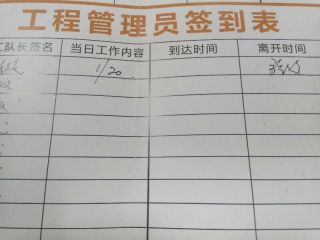 工程管理员签到表
队长签名 当日工作内容 到达时间 离开时间
1/20